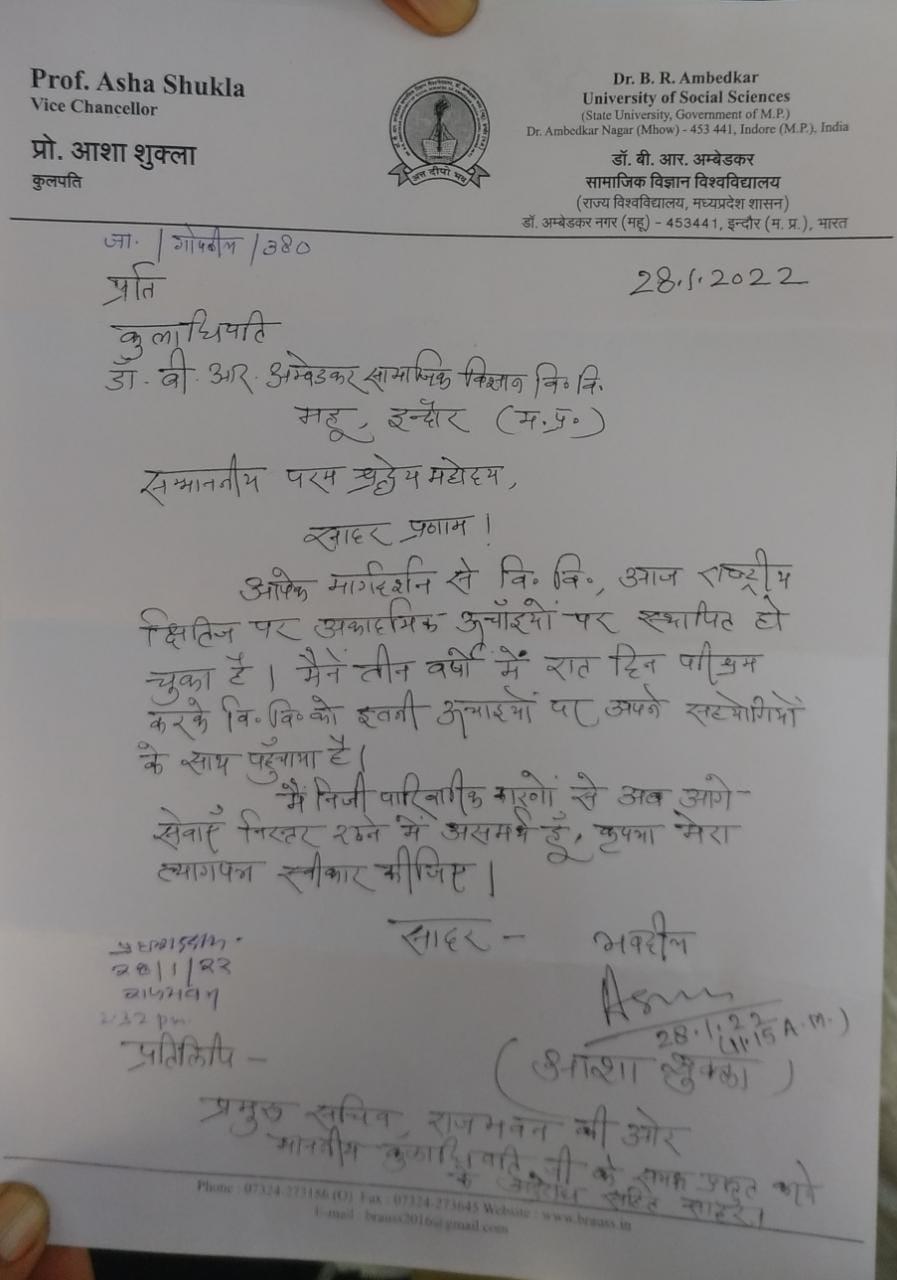 Prof. Asha Shukla
Vice Chancellor
प्रो. आशा शुक्ला
कुलपति
अत्त दीपो भव
Dr. B. R. Ambedkar
University of Social Sciences
(State University, Government of M.P.)
Dr. Ambedkar Nagar (Mhow) - 453 441, Indore (M.P.), India
डॉ. बी. आर. अम्बेडकर
सामाजिक विज्ञान विश्वविद्यालय
(राज्य विश्वविद्यालय, मध्यप्रदेश शासन)
डॉ. अम्बेडकर नगर (महू) - 453441, इन्दौर (म. प्र.), भारत
जा. / गोपनीय /380
28.1.2022
प्रति
कुलाधिपति
डॉ. बी. आर. अम्बेडकर सामाजिक विज्ञान वि॰ वि.
महू, इन्दौर (म.प्र.)
सम्माननीय परम श्रद्धेय महोदय,
सादर प्रणाम !
आपके मार्गदर्शन से वि॰ वि॰, आज राष्ट्रीय
क्षितिज पर अकादमिक ऊचाँइयों पर स्थापित हो
चुका है । मैनें तीन वर्षों में रात दिन परिश्रम
करके वि॰ वि॰ को इतनी ऊचाइयों पर अपने सहयोगियों
के साथ पहुँचाया है।
मैं निजी पारिवारिक कारणों से अब आगे
सेवाएँ निरन्तर रखने में असमर्थ हूँ, कृपया मेरा
त्यागपत्र स्वीकार कीजिए ।
सादर – भवदीय
28.1.22
(11.15 A.M.)
(आशा शुक्ला)
28/1/22
राजभवन
2:32 pm
प्रतिलिपि –
प्रमुख सचिव, राजभवन की ओर
माननीय कुलाधिपति जी के समक्ष प्रस्तुत करने
के अनुरोध सहित सादर।
Phone : 07324-273186 (O) Fax : 07324-273645 Website : www.brauss.in
E-mail : brauss2016@gmail.com